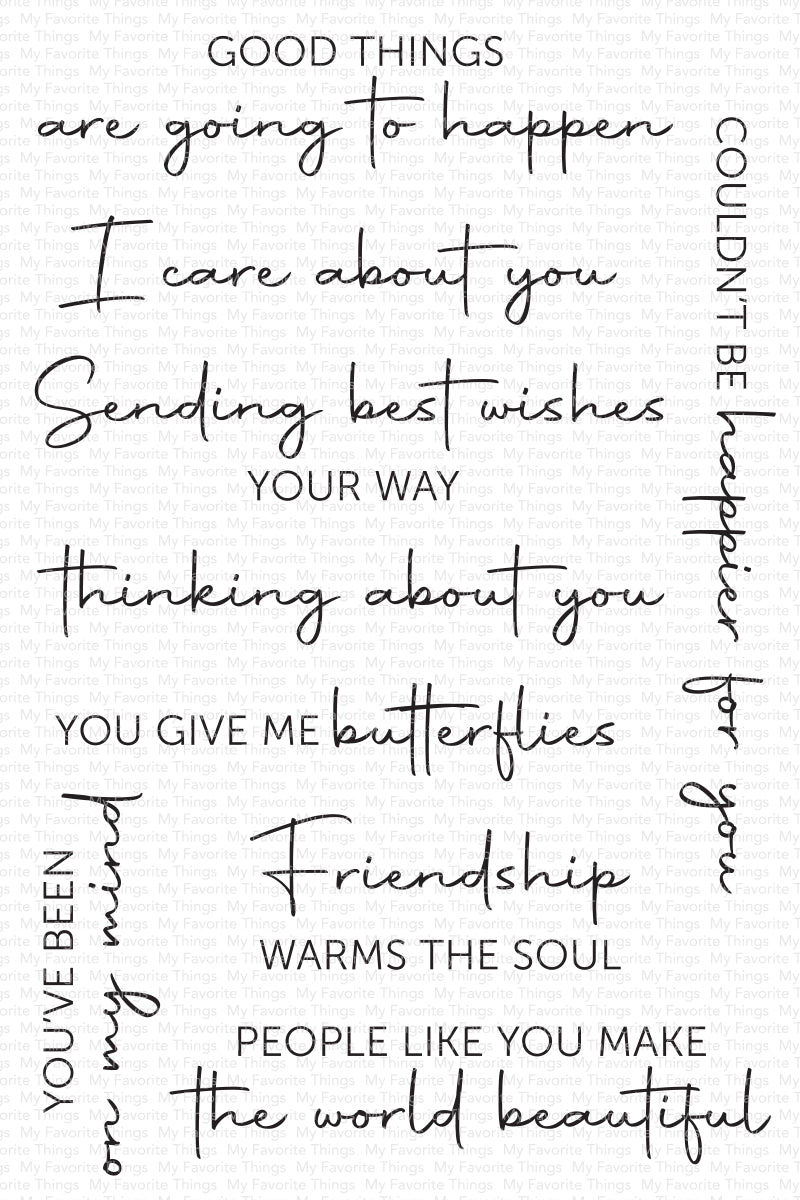 GOOD THINGS
are going to happen
I care about you
Sending best wishes
YOUR WAY
thinking about you
YOU GIVE ME butterflies
Friendship
WARMS THE SOUL
PEOPLE LIKE YOU MAKE
the world beautiful
YOU'VE BEEN
on my mind
COULDN'T BE happier for you
My Favorite Things